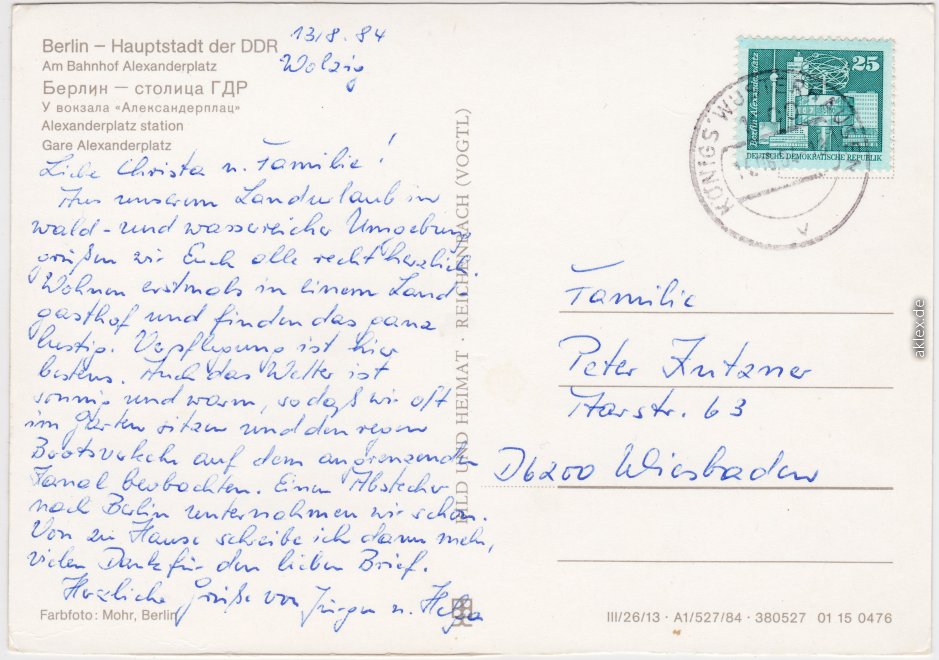 Berlin – Hauptstadt der DDR
Am Bahnhof Alexanderplatz
Берлин — столица ГДР
У вокзала «Александерплац»
Alexanderplatz station
Gare Alexanderplatz
13/8.84
Wolzig
Liebe Christa u. Familie!
Aus unserem Landurlaub in
wald- und wasserreicher Umgebung
grüßen wir Euch alle recht herzlich.
Wohnen erstmals in einem Land-
gasthof und finden das ganz
lustig. Verpflegung ist hier
bestens. Auch das Wetter ist
sonnig und warm, sodaß wir oft
im Garten sitzen und den regen
Bootsverkehr auf dem angrenzenden
Kanal beobachten. Einen Abstecher
nach Berlin unternahmen wir schon.
Von zu Hause schreibe ich dann mehr,
vielen Dank für den lieben Brief.
Herzliche Grüße von Jürgen u. Helga
Farbfoto: Mohr, Berlin
BILD UND HEIMAT · REICHENBACH (VOGTL)
25
Berlin, Alexanderplatz
DEUTSCHE DEMOKRATISCHE REPUBLIK
KÖNIGS WUSTERHAUSEN
v
Familie
Peter
Aarstr. 63
D6200 Wiesbaden
III/26/13 · A1/527/84 · 380527 01 15 0476
aklex.de